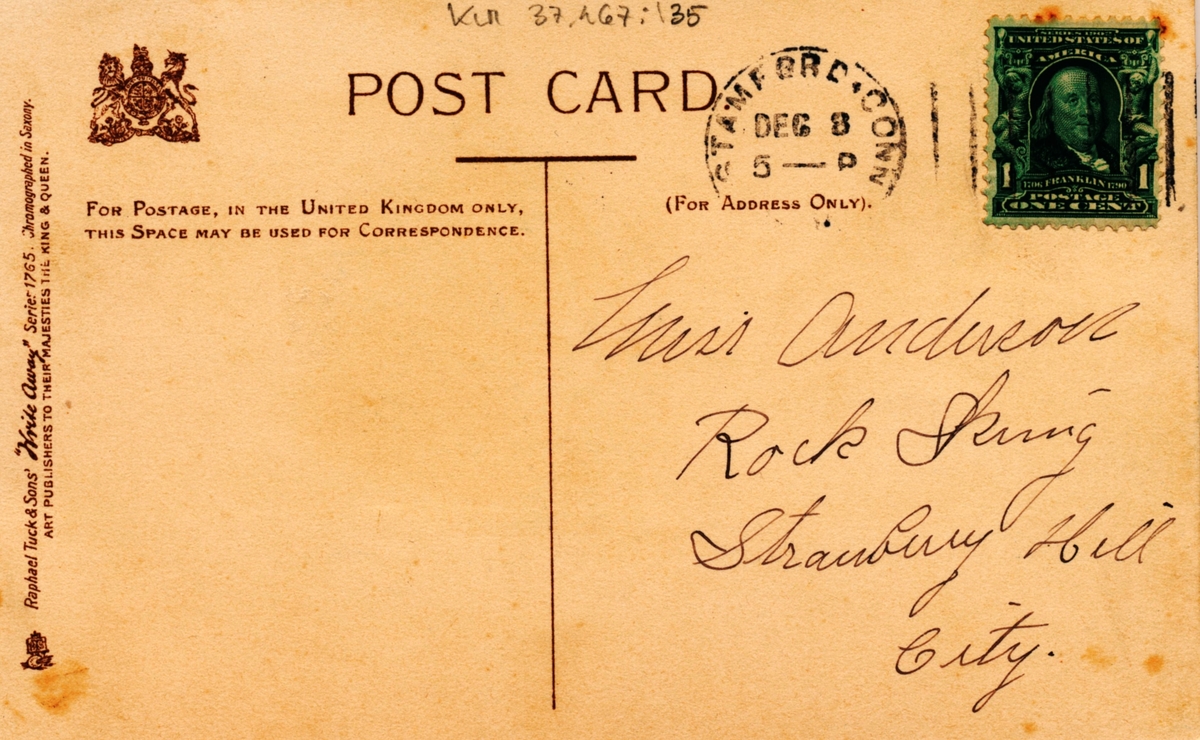 37,467:135
POST CARD
STAMFORD, CONN
DEC 8
5 — P
SERIES 1902
UNITED STATES OF
AMERICA
1 1706 FRANKLIN 1790 1
POSTAGE
ONE CENT
FOR POSTAGE, IN THE UNITED KINGDOM ONLY,
THIS SPACE MAY BE USED FOR CORRESPONDENCE.
(FOR ADDRESS ONLY).
Miss Anderson
Rock Spring
Strawberry Hill
City.
Raphael Tuck & Sons' "Write Away" Series 1765. Chromographed in Saxony.
ART PUBLISHERS TO THEIR MAJESTIES THE KING & QUEEN.